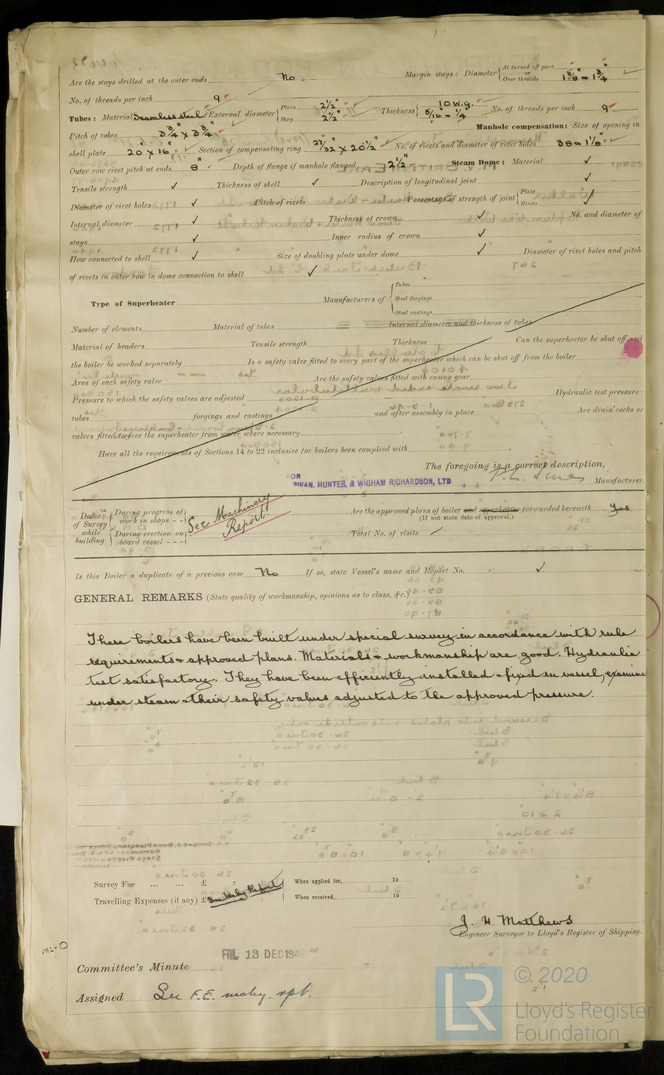 Are the stays drilled at the outer ends No Margin stays: Diameter { At turned off part, or Over threads 1 5/8" & 1 3/4"
No. of threads per inch 9
Tubes: Material Seamless steel External diameter { Plain 2 1/2" Stay 2 1/2" Thickness { 10 W.G. 5/16" & 1/4" No. of threads per inch 9
Pitch of tubes 3 3/4" x 3 3/4" Manhole compensation: Size of opening in
shell plate 20 x 16" Section of compensating ring 27/32 x 20 1/2" No. of rivets and diameter of rivet holes 38 - 1 1/8"
Outer row rivet pitch at ends 8" Depth of flange if manhole flanged 2 1/2" Steam Dome: Material ✓
Tensile strength ✓ Thickness of shell ✓ Description of longitudinal joint ✓
Diameter of rivet holes ✓ Pitch of rivets Percentage of strength of joint { Plate Rivets ✓
Internal diameter ✓ Thickness of crown ✓ No. and diameter of
stays ✓ Inner radius of crown ✓
How connected to shell ✓ Size of doubling plate under dome ✓ Diameter of rivet holes and pitch
of rivets in outer row in dome connection to shell ✓
Type of Superheater Manufacturers of { Tubes Steel forgings Steel castings
Number of elements Material of tubes Internal diameter and thickness of tubes
Material of headers Tensile strength Thickness Can the superheater be shut off and
the boiler be worked separately Is a safety valve fitted to every part of the superheater which can be shut off from the boiler
Area of each safety valve Are the safety valves fitted with easing gear
Pressure to which the safety valves are adjusted Hydraulic test pressure:
tubes forgings and castings and after assembly in place Are drain cocks or
valves fitted to free the superheater from water where necessary
Have all the requirements of Sections 14 to 22 inclusive for boilers been complied with
The foregoing is a correct description,
FOR
SWAN, HUNTER, & WIGHAM RICHARDSON, LTD. Manufacturer.
Dates of Survey while building { During progress of work in shops - - During erection on board vessel - - - See Machinery Report. Are the approved plans of boiler and superheater forwarded herewith Yes
(If not state date of approval.)
Total No. of visits
Is this Boiler a duplicate of a previous case No If so, state Vessel's name and Report No. ✓
GENERAL REMARKS (State quality of workmanship, opinions as to class, &c.)
These boilers have been built under special survey in accordance with rule
requirements & approved plans. Materials & workmanship are good. Hydraulic
test satisfactory. They have been efficiently installed & fixed in vessel, examined
under steam & their safety valves adjusted to the approved pressure.
Survey Fee ... ... £ See Mchy Report When applied for, 19
Travelling Expenses (if any) £ When received, 19
J. H. Matthews
Engineer Surveyor to Lloyd's Register of Shipping.
FRI. 13 DEC 1946
Committee's Minute
Assigned See F.E. mchy. rpt.
© 2020
Lloyd's Register
Foundation
LR